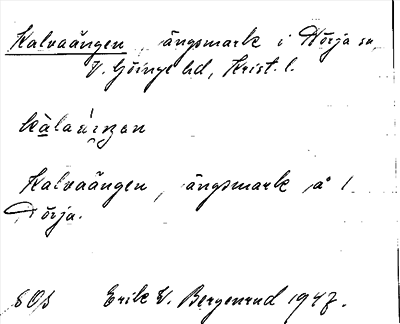 Kalvaängen, ängsmark i Nörja sn,
V. Göinge hd, Krist. l.
Kalvaängen, ängsmark å 1
Nörja.
Erik V. Bergenrud 1947.